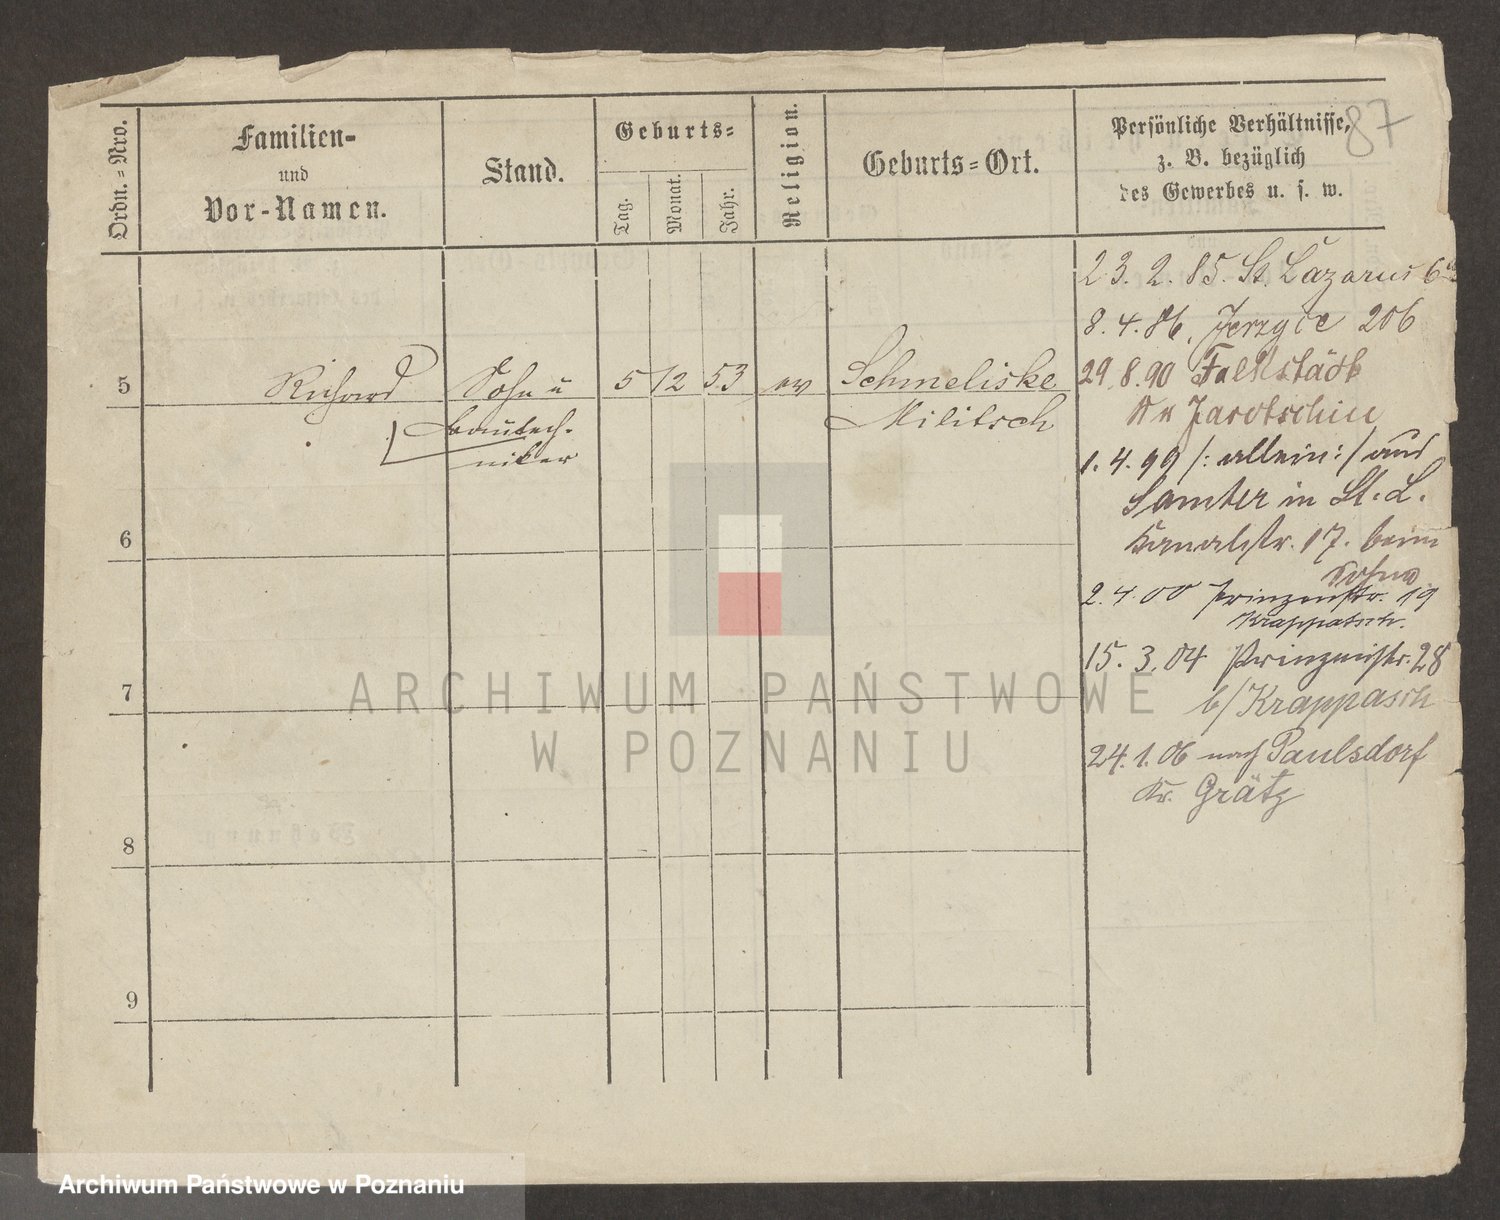 87
Ordn.=Nro.
Familien-
und
Vor-Namen.
Stand.
Geburts=
Tag.
Monat.
Jahr.
Religion.
Geburts=Ort.
Persönliche Verhältnisse,
z. B. bezüglich
des Gewerbes u. s. w.
23. 2. 85. St. Lazarus 6
8. 4. 86, Jerzyce 206
5 Richard Sohn u 5 12 53 ev Schmeliske
Bautech-
niker
Militsch
29. 8. 90 Falkstädt
Kr Jarotschin
1. 4. 99 /: allein :/ aus
Samter in St. L.
Kanalstr. 17. beim
Sohne
2. 4. 00 Prinzenstr. 19
Krappatsch.
15. 3. 04 Prinzenstr. 28
b/ Krappasch
24. 1. 06 nach Paulsdorf
Kr. Grätz
6
7
8
9
ARCHIWUM PAŃSTWOWE
W POZNANIU
Archiwum Państwowe w Poznaniu